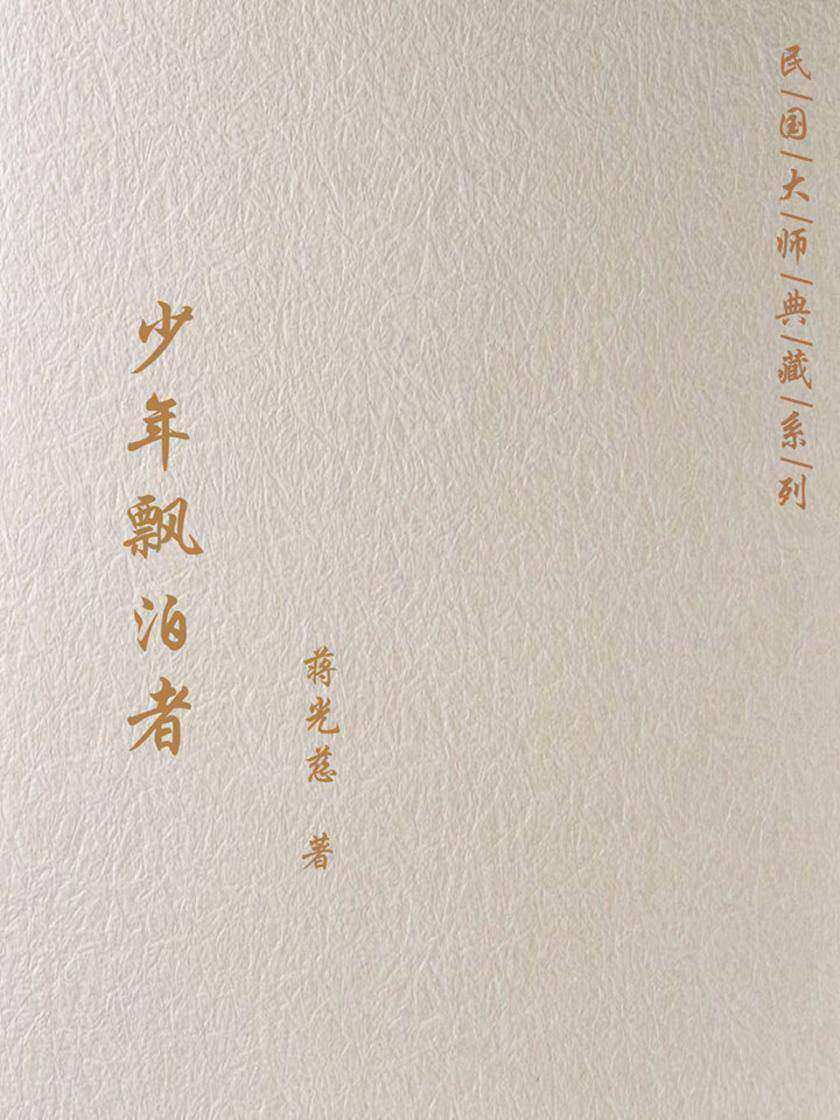 民/国/大/师/典/藏/系/列
少年飘泊者
蒋光慈 著